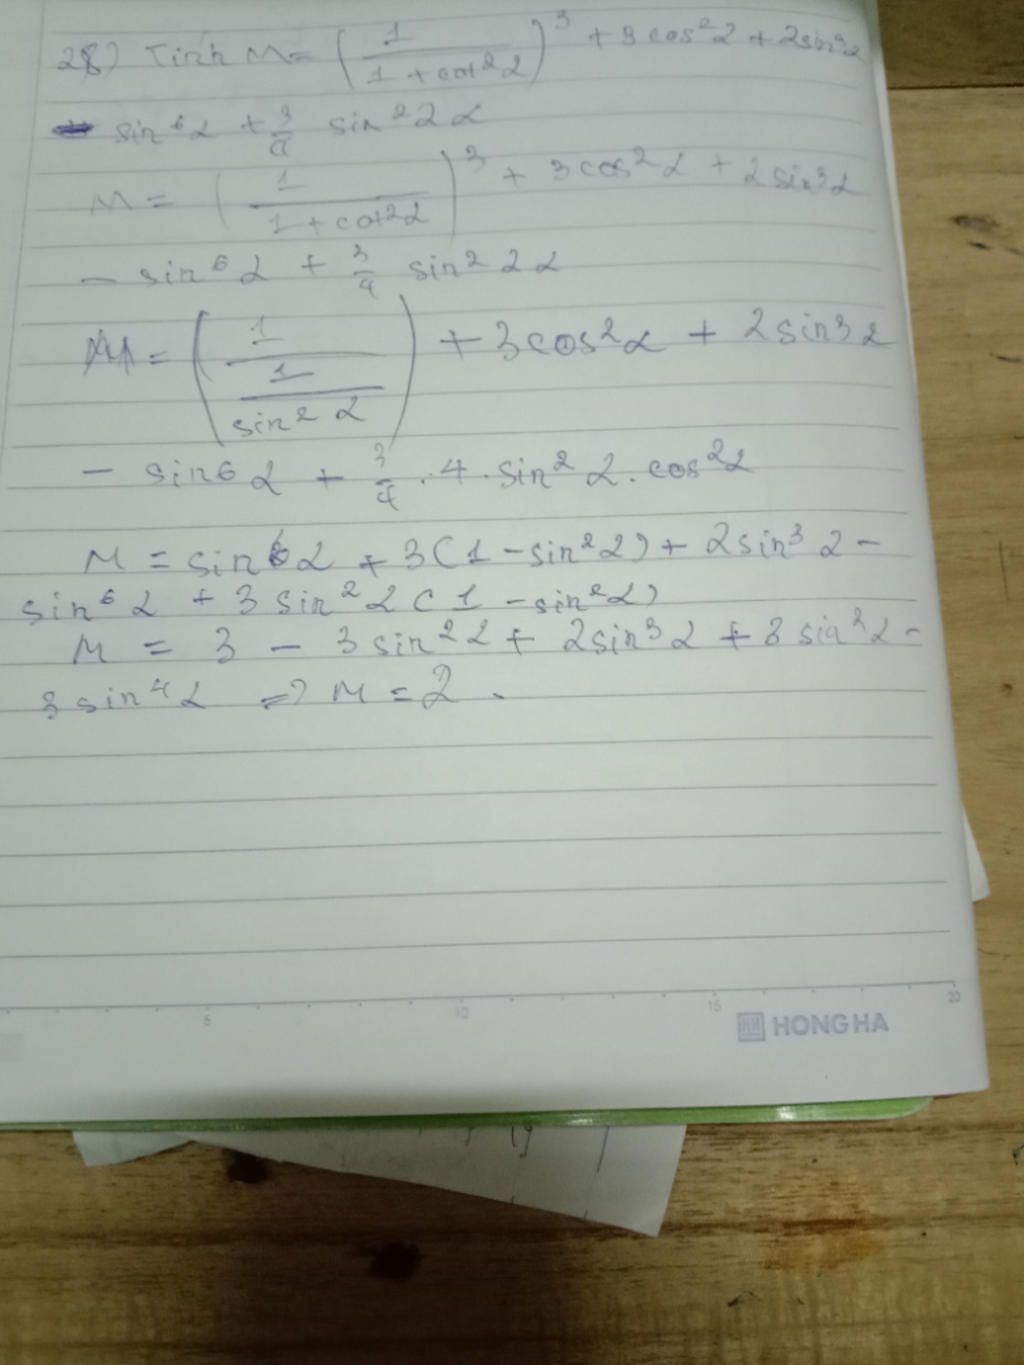 28) Tính M = (1/(1 + cot²α))³ + 3cos²α + 2sin³α
- sin⁶α + 3/4 sin²2α
M = (1/(1 + cot²α))³ + 3cos²α + 2sin³α
- sin⁶α + 3/4 sin²2α
M = (1/(1/sin²α)) + 3cos²α + 2sin³α
- sin6α + 3/4 . 4 . sin²α . cos²α
M = sin6α + 3(1 - sin²α) + 2sin³α -
sin⁶α + 3sin²α(1 - sin²α)
M = 3 - 3sin²α + 2sin³α + 3sin²α -
3sin⁴α => M = 2.
5 10 15 20
HH HONG HA